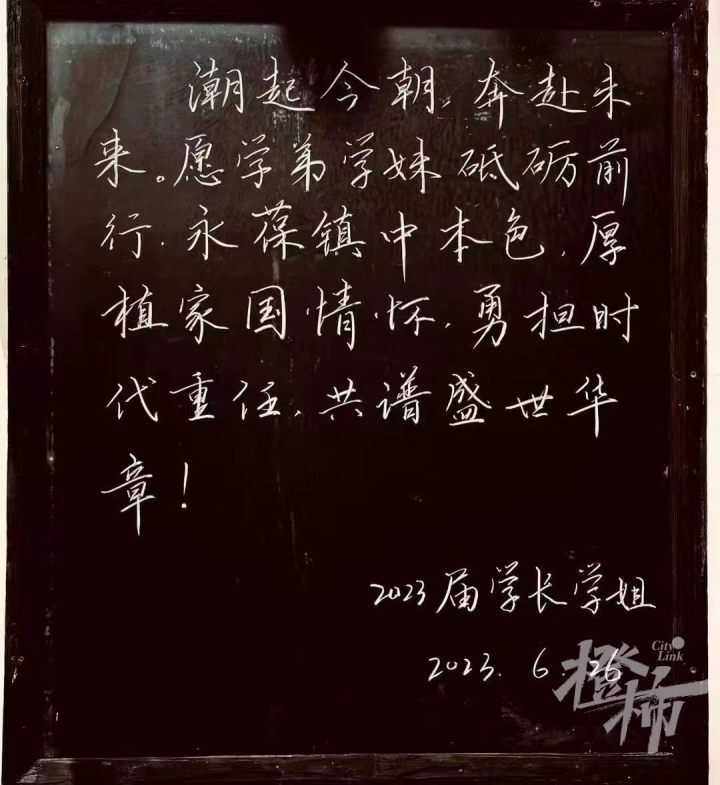 潮起今朝,奔赴未
来。愿学弟学妹砥砺前
行,永葆镇中本色,厚
植家国情怀,勇担时
代重任,共谱盛世华
章!
2023届学长学姐
2023.6.26
City Link
橙柿